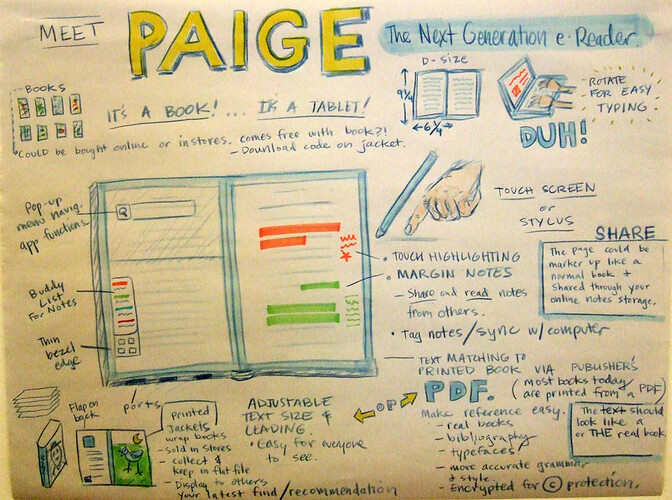 MEET
PAIGE
The Next Generation e-Reader.
BOOKS
IT'S A BOOK! ... IT'S A TABLET!
COULD be bought online or instores. comes free with book?!
- Download code on jacket.
D-SIZE
9 1/4
6 1/4
ROTATE
FOR EASY
TYPING.
DUH!
Pop-up
menu navig.
app functions.
Buddy
List
For Notes
Thin
bezel
edge
ports
TOUCH SCREEN
or
STYLUS
• TOUCH HIGHLIGHTING
• MARGIN NOTES
- Share and read notes
from others.
• Tag notes/sync w/computer
SHARE
The page could be
marker up like a
normal book +
shared through your
online notes storage.
TEXT MATCHING TO
PRINTED BOOK VIA PUBLISHER'S
PDF.
(most books today
are printed from a PDF)
Flap on
back
Printed
Jackets
wrap books
- Sold in stores
- collect &
keep in flat file
- Display to others
your latest find/recommendation
ADJUSTABLE
TEXT SIZE &
LEADING.
• Easy for everyone
to see.
OR
Make reference easy.
- real books
- bibliography
- typefaces!
- more accurate grammar
& style
- Encrypted for © protection.
The text should
look like a
or THE real book